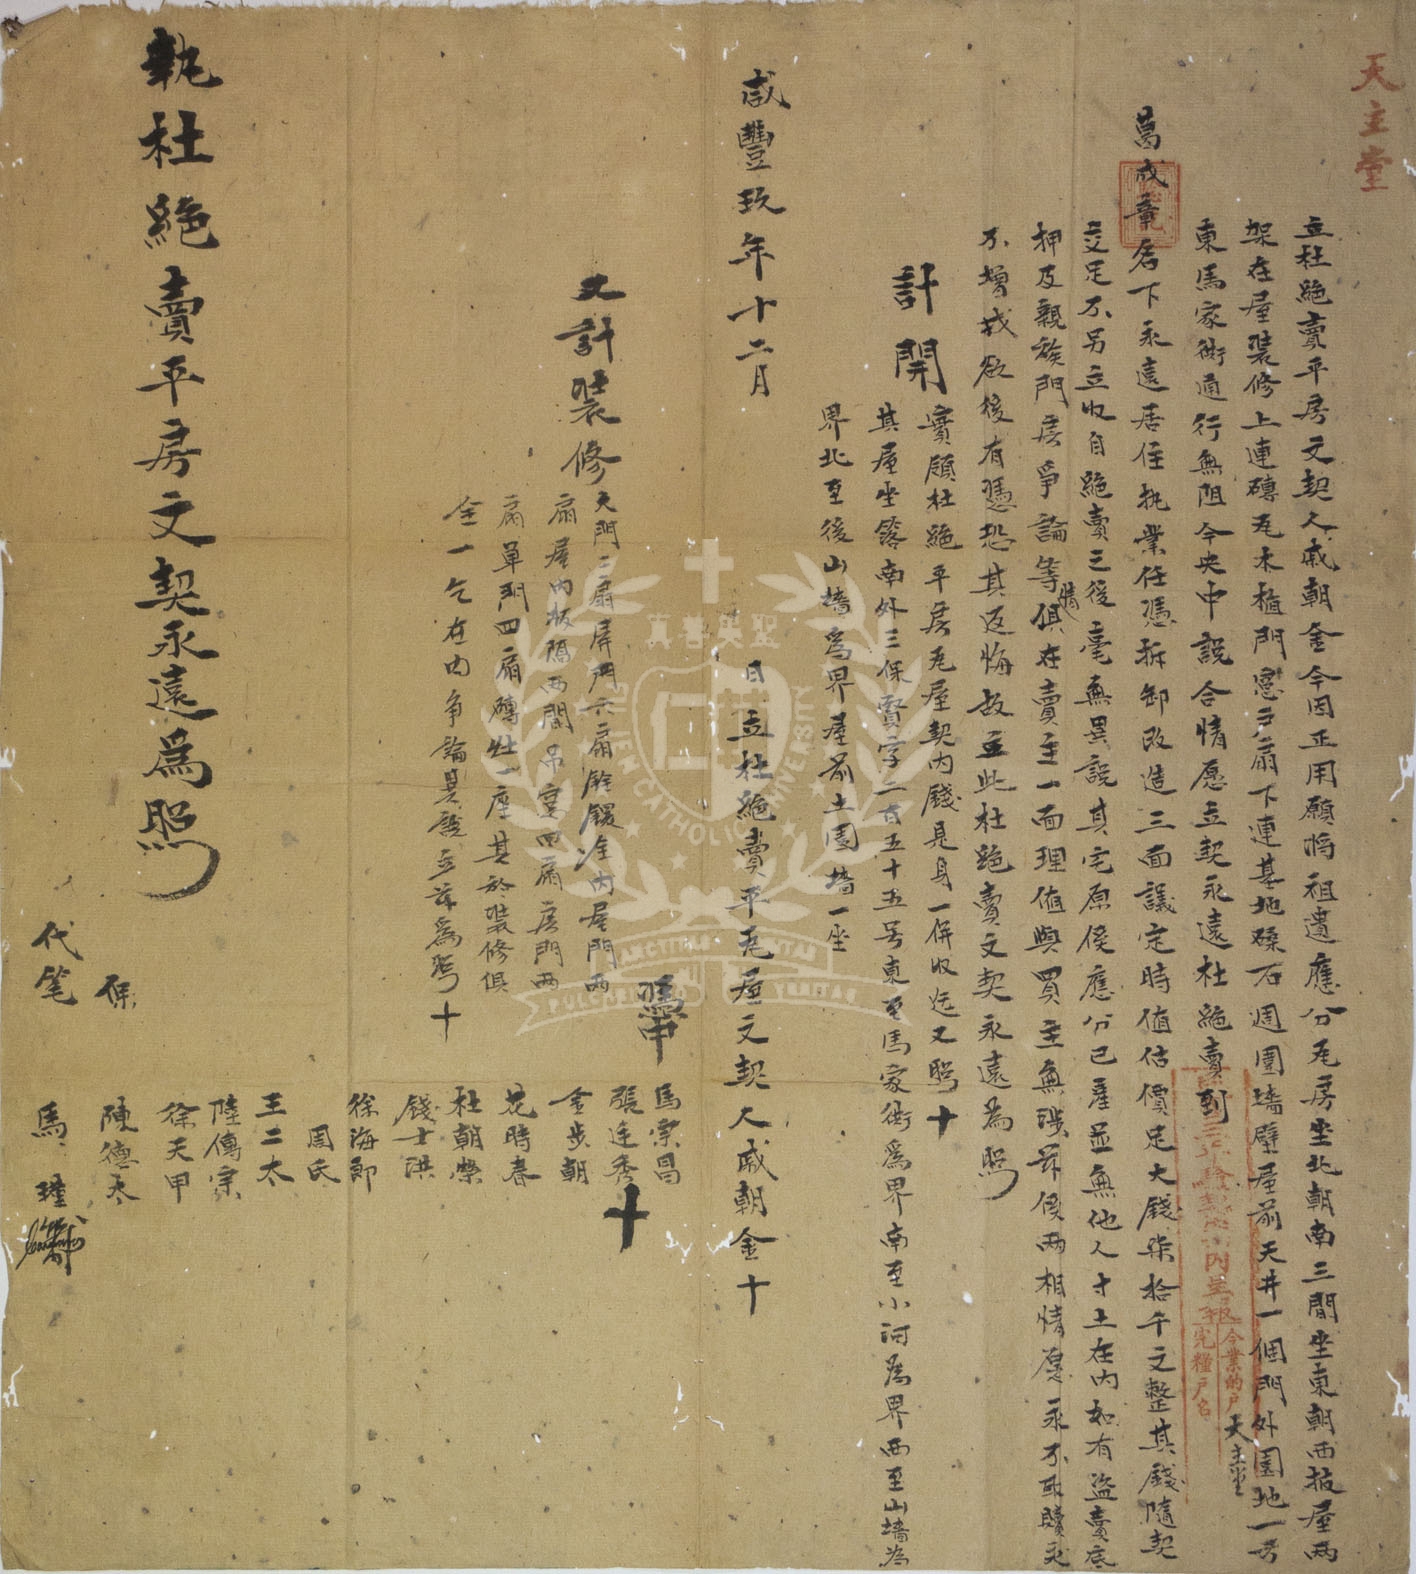 天主堂
立杜絕賣平房文契人戚朝金今因正用願將祖遺應分瓦房坐北朝南三間坐東朝西披屋兩
架在屋裝修上連磚瓦木植門窻戶扇下連基地磉石週圍墻壁屋前天井一個門外園地一方
東馬家衖通行無阻今央中說合情愿立契永遠杜絕賣到
葛成章名下永遠居住執業任憑拆卸改造三面議定時值估價足大錢柒拾千文整其錢隨契
交足不另立收自絕賣之後毫無異說其宅原係應分己產並無他人寸土在內如有盜賣底
押及親族門房爭論等情俱在賣主一面理值與買主無涉茲係兩相情愿永不取贖永
不增找欲後有憑恐其返悔故立此杜絕賣文契永遠為照
計開
實頎杜絕平房瓦屋契內錢是身一併收迄又照十
其屋坐落南外三保賢字二百五十五号東至馬家衖爲界南至小河爲界西至山墻為
界北至後山墻爲界屋前土園墻一坐
咸豐玖年十二月 日立杜絕賣平瓦屋文契人戚朝金十
又計裝修
大門二扇屏門六扇 內屋門兩
扇屋內板隔兩間吊 四扇房門兩
扇單門四扇磚灶一座其於裝修俱
全一乞在內爭論異說立茲爲照十
憑中
馬宗昌
張廷秀十
金步朝
范時春
杜朝榮
錢士洪
徐海郎
周氏
王二太
陸傳宗
徐天甲
保 陳德太
代笔 馬瑾
執杜絕賣平房文契永遠爲照
內呈報
今業的戶天主堂
完糧戶名
聖美善真
FU JEN CATHOLIC UNIVERSITY